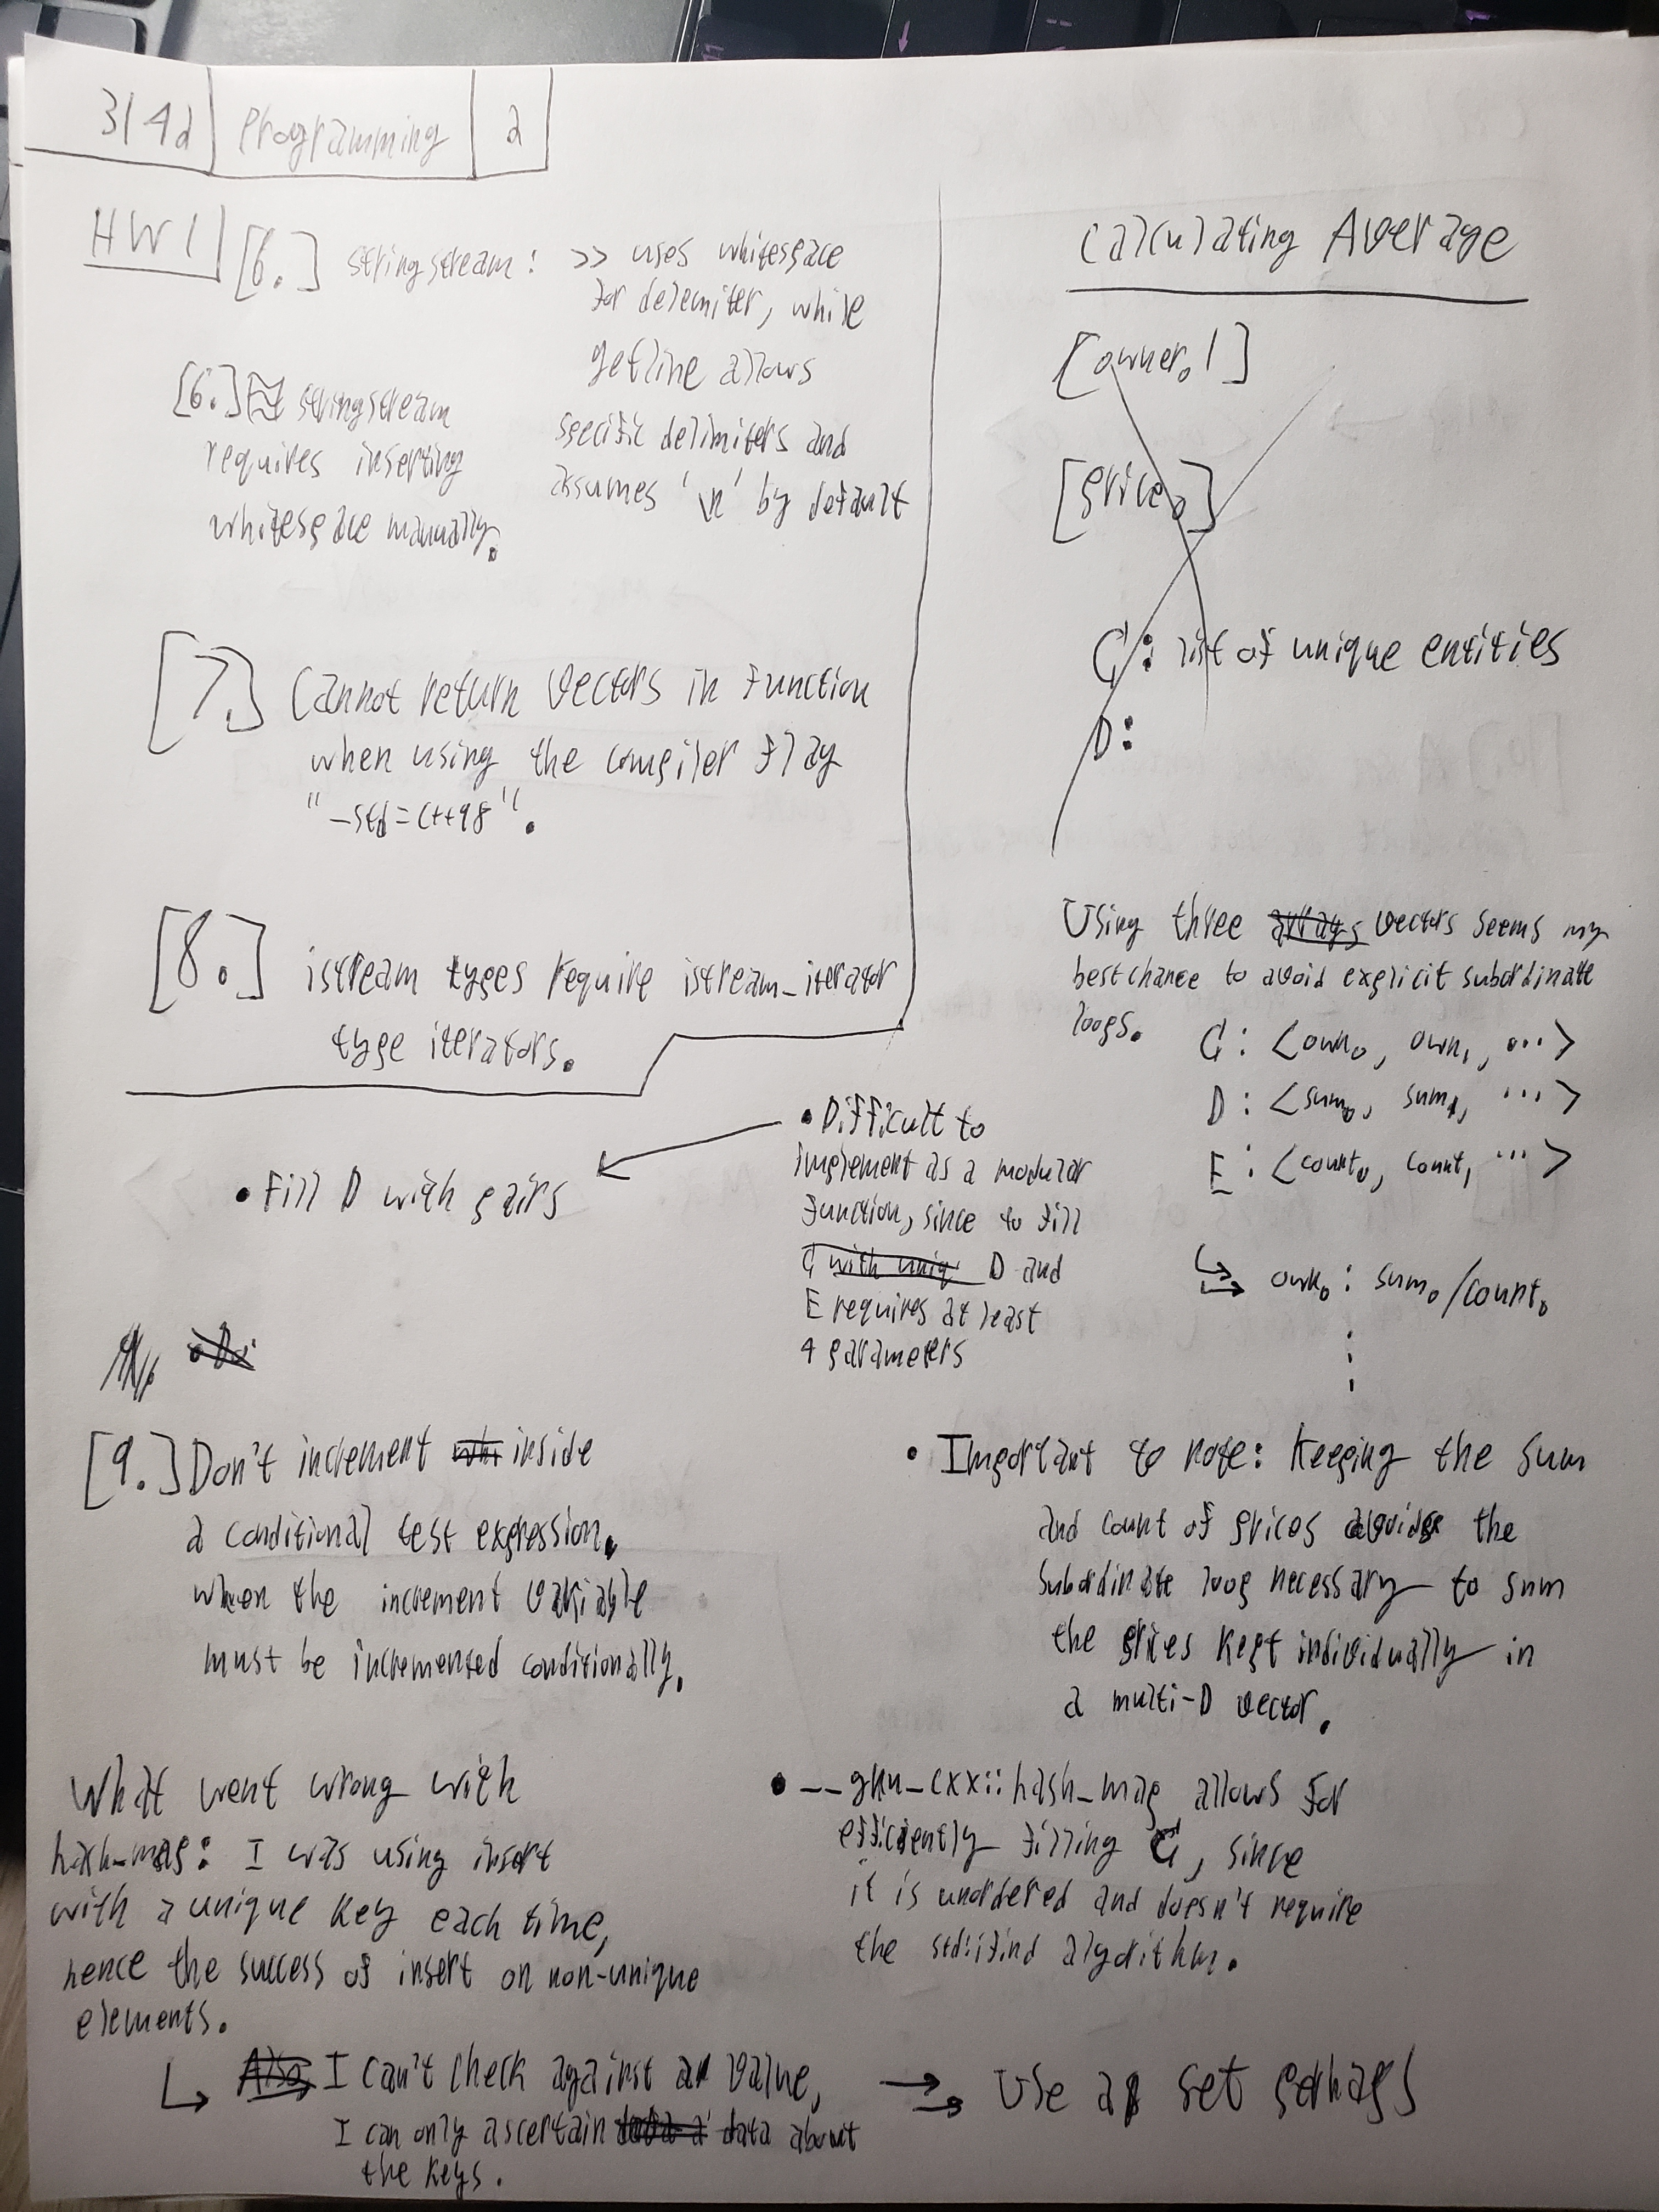 314a
Programming
2
HW1
[6.] stringstream: >> uses whitespace
for delemiter, while
getline allows
specific delimiters and
assumes '\n' by default
[6.] stringstream
requires inserting
whitespace manually.
[7.] Cannot return vectors in function
when using the compiler flag
"-std=c++98".
[8.] istream types require istream_iterator
type iterators.
Calculating Average
[owner, 1]
[price]
C: list of unique entities
D:
Using three arrays vectors seems my
best chance to avoid explicit subordinate
loops.
C: <own0, own1, ...>
D: <sum0, sum1, ...>
E: <count0, count1, ...>
own0: sum0/count0
• Difficult to
implement as a modular
function, since to fill
C with uniq D and
E requires at least
4 parameters
• Fill D with pairs
[9.] Don't increment inside
a conditional test expression.
when the increment variable
must be incremented conditionally.
• Important to note: Keeping the sum
and count of prices avoids the
subordinate loop necessary to sum
the prices kept individually in
a multi-D vector.
• __gnu_cxx::hash_map allows for
efficiently filling C, since
it is unordered and doesn't require
the std::find algorithm.
What went wrong with
hash_map: I was using insert
with a unique key each time,
hence the success of insert on non-unique
elements.
Also, I can't check against a value,
I can only ascertain data about
the keys.
Use a set perhaps